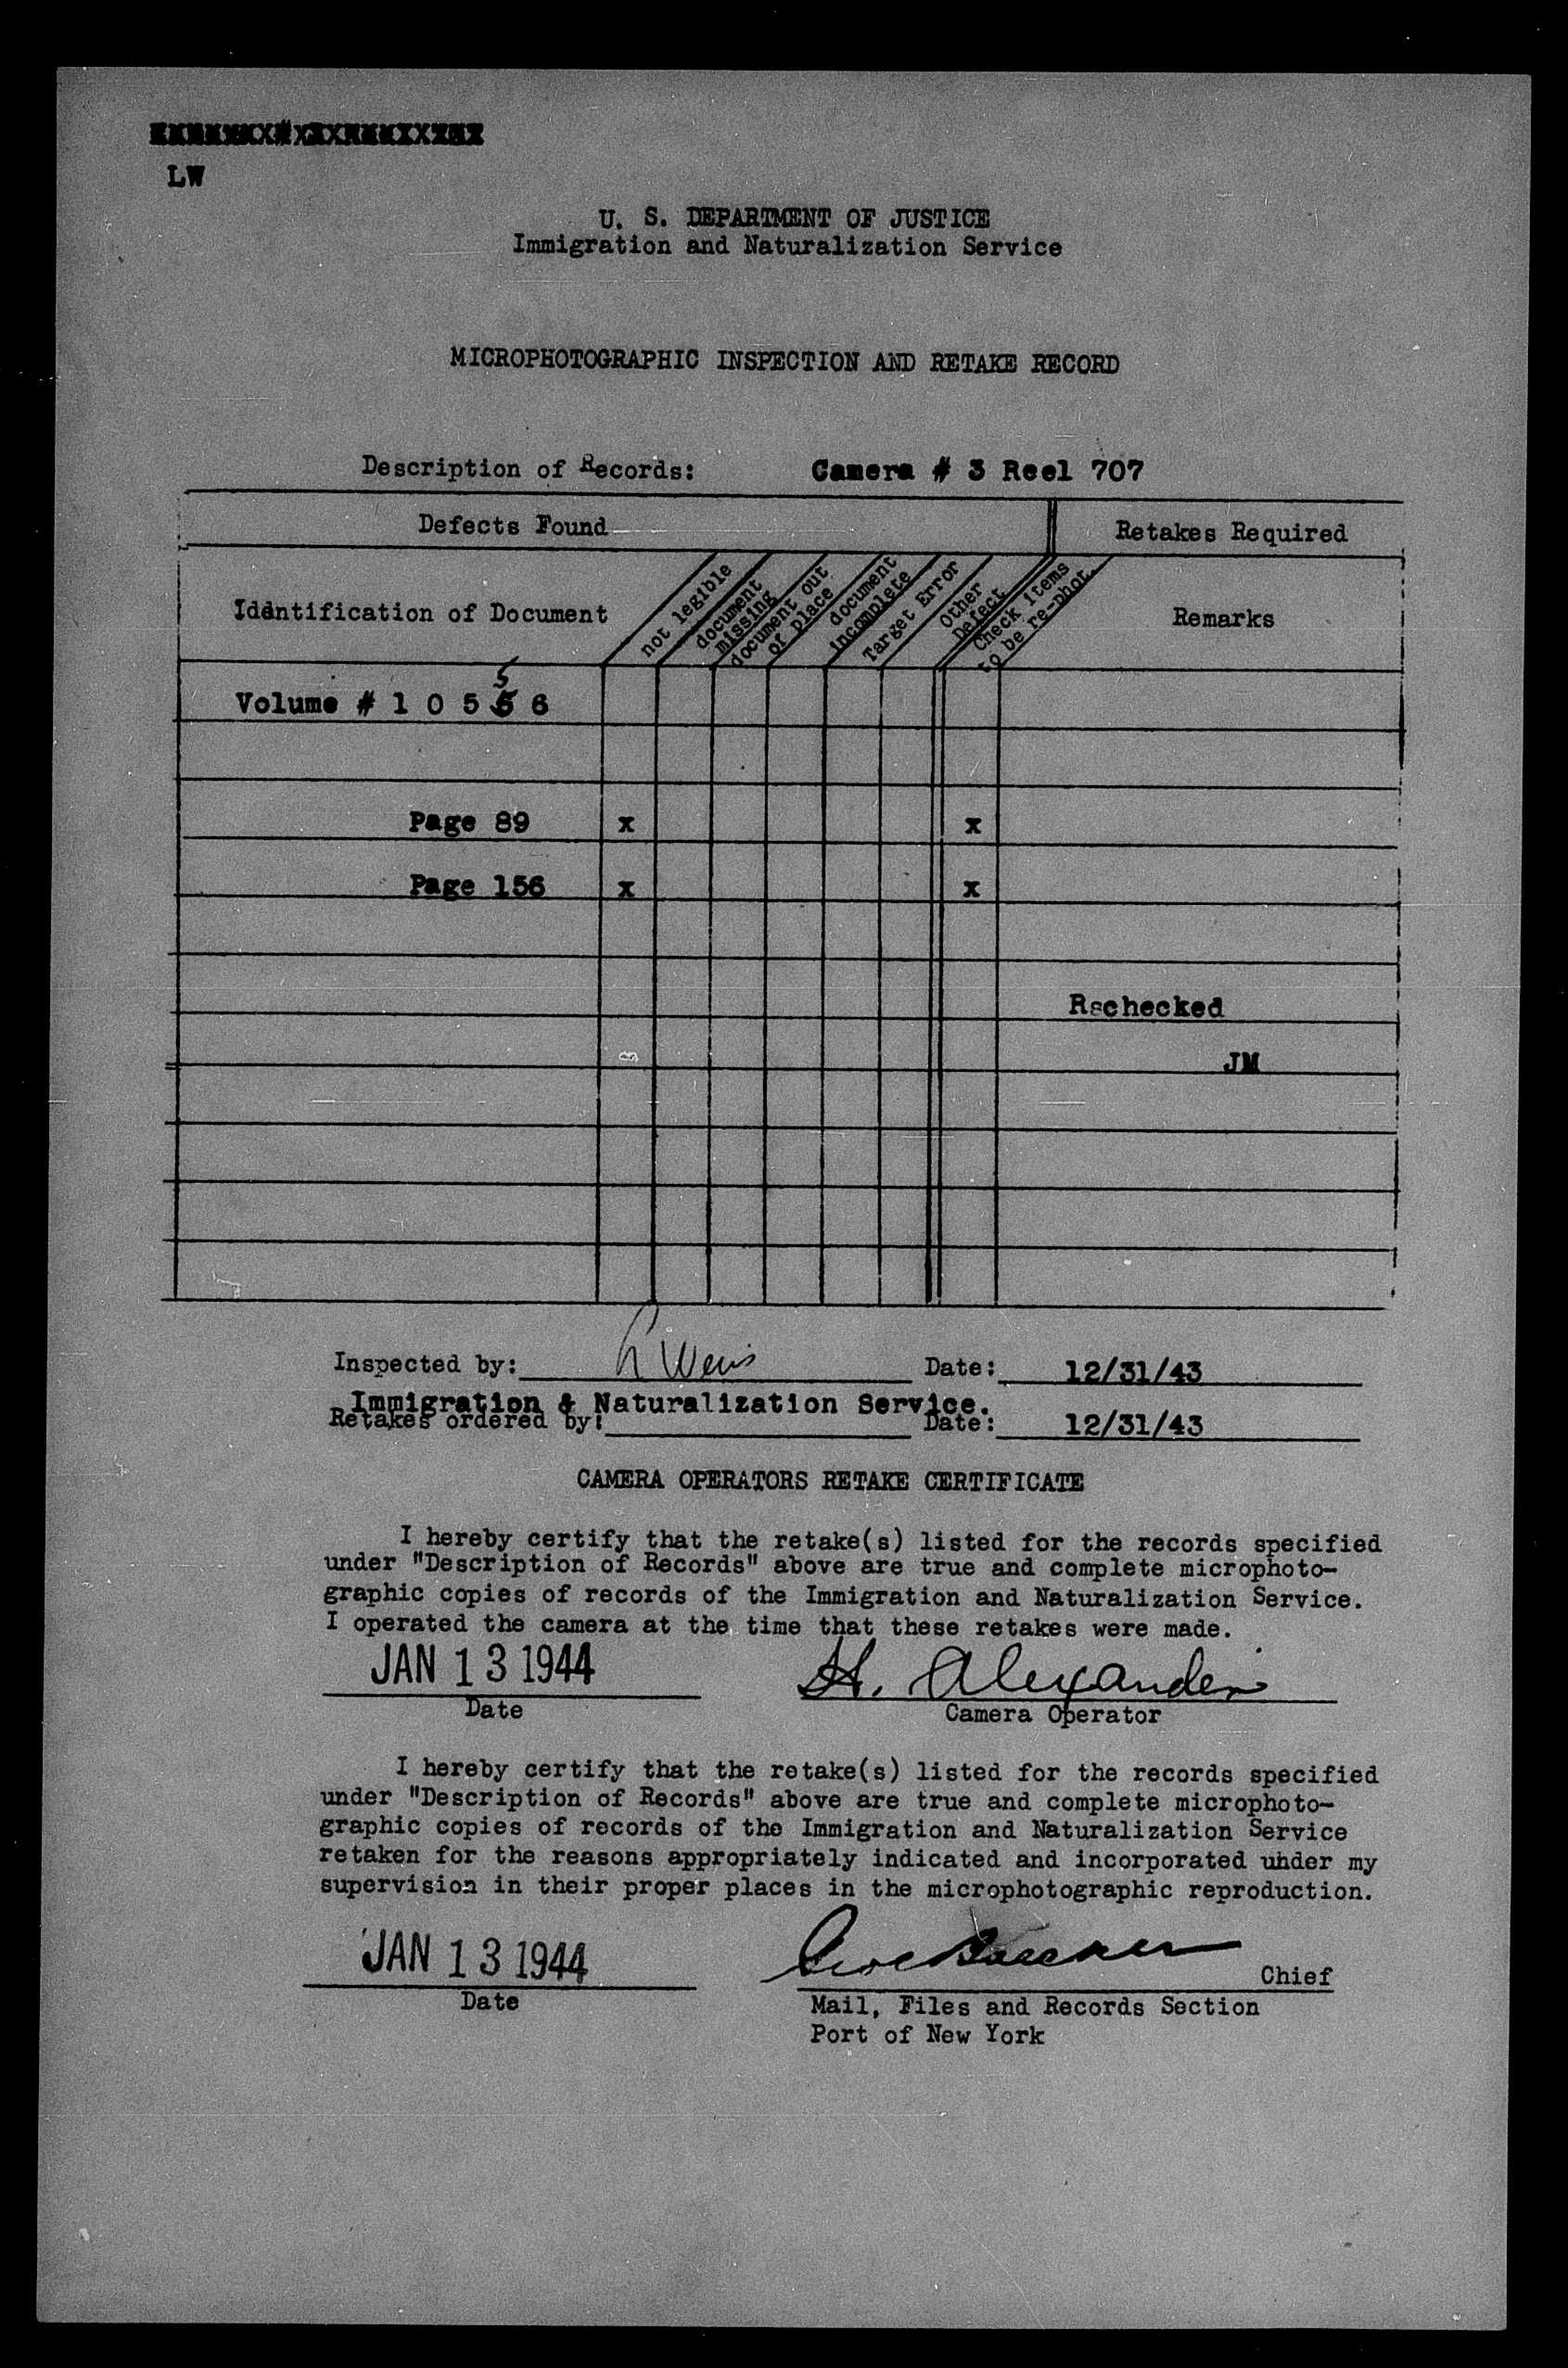 LW
U. S. DEPARTMENT OF JUSTICE
Immigration and Naturalization Service
MICROPHOTOGRAPHIC INSPECTION AND RETAKE RECORD
Description of Records: Camera # 3 Reel 707
Defects Found Retakes Required
Identification of Document
not legible
document missing
document out of place
document incomplete
Target Error
Other Defect
Check items to be re-phot.
Remarks
5
Volume # 1 0 5 5 6
Page 89 x x
Page 156 x x
Rechecked
JM
Inspected by: Date: 12/31/43
Immigration & Naturalization Service.
Retakes ordered by: Date: 12/31/43
CAMERA OPERATORS RETAKE CERTIFICATE
I hereby certify that the retake(s) listed for the records specified
under "Description of Records" above are true and complete microphoto-
graphic copies of records of the Immigration and Naturalization Service.
I operated the camera at the time that these retakes were made.
JAN 13 1944 H. Alexander
Date Camera Operator
I hereby certify that the retake(s) listed for the records specified
under "Description of Records" above are true and complete microphoto-
graphic copies of records of the Immigration and Naturalization Service
retaken for the reasons appropriately indicated and incorporated under my
supervision in their proper places in the microphotographic reproduction.
JAN 13 1944 Chief
Date Mail, Files and Records Section
Port of New York